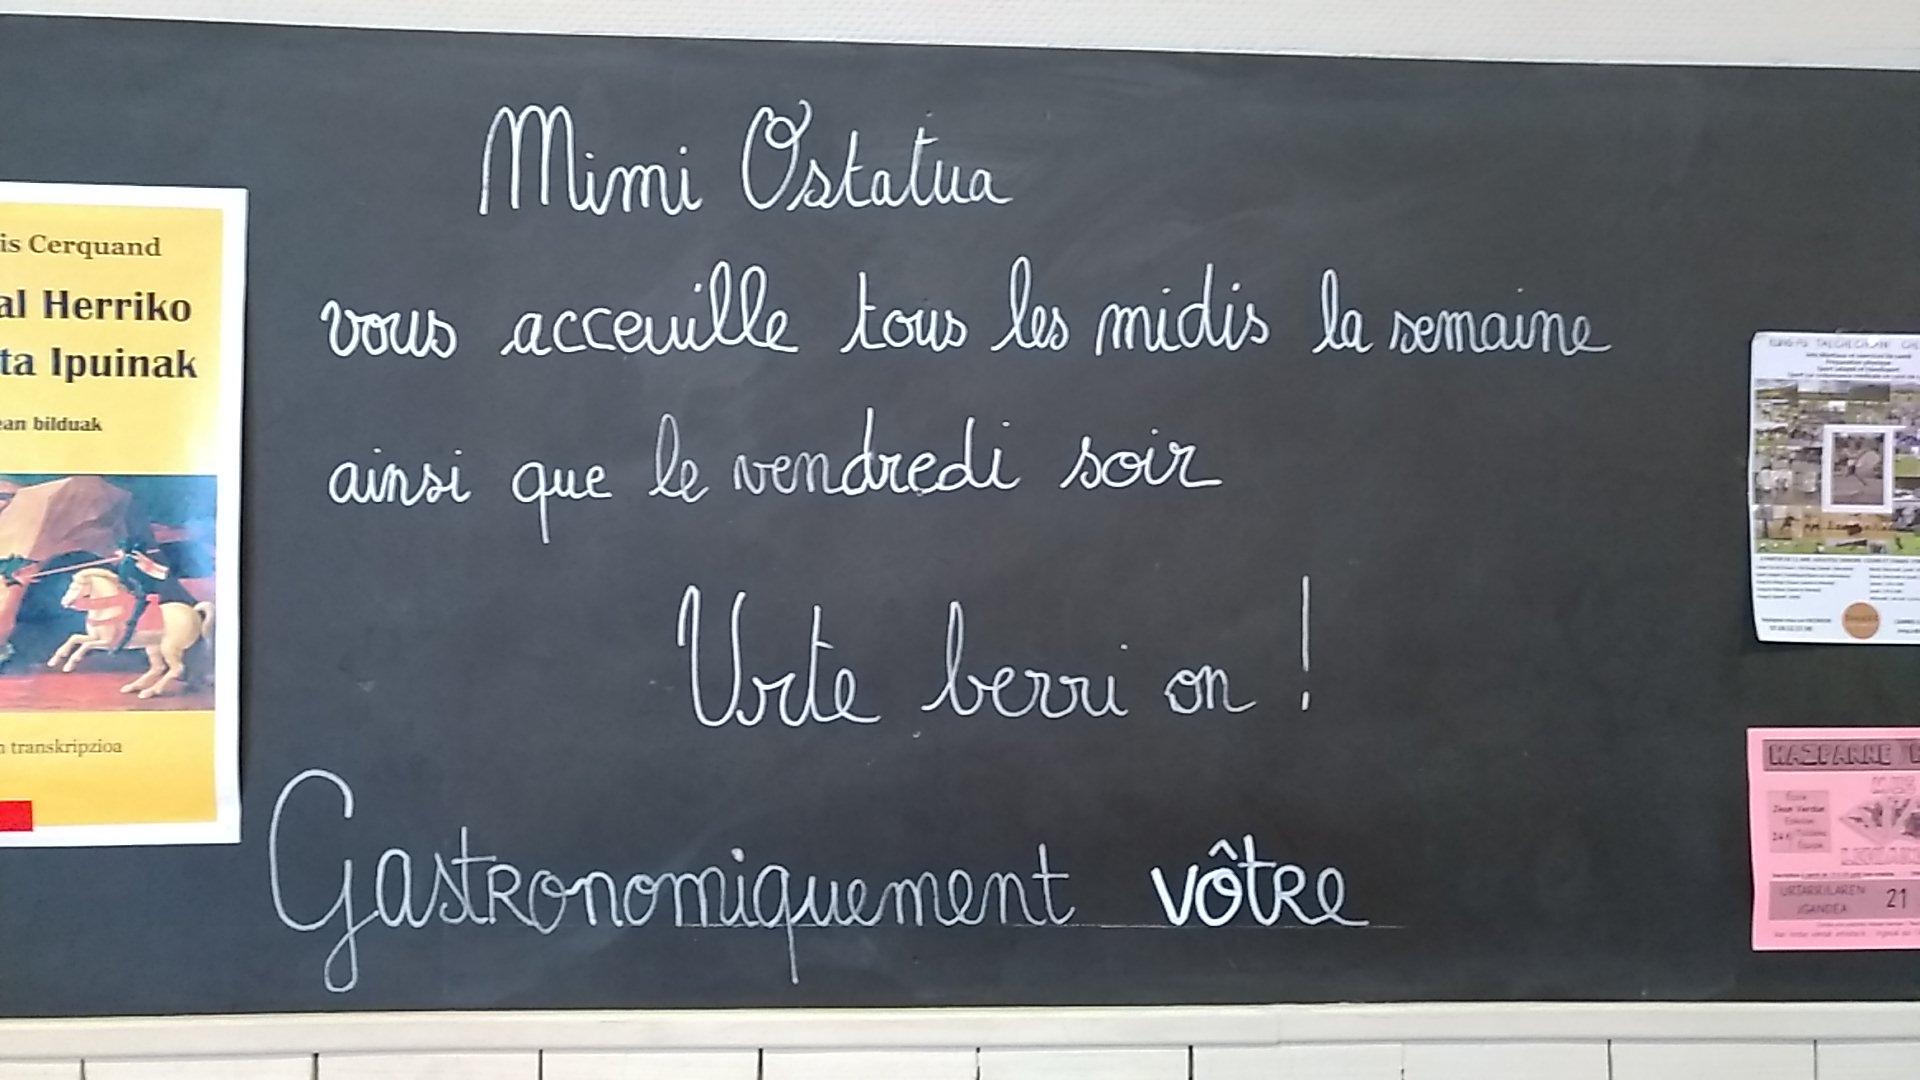 Mimi Ostatua
vous acceuille tous les midis la semaine
ainsi que le vendredi soir
Urte berri on !
Gastronomiquement vôtre
is Cerquand
al Herriko
ta Ipuinak
ean bilduak
n transkripzioa
KUNG-FU TAI CHI CHUAN
MAZPARNE
URTARRILAREN
IGANDEA
21